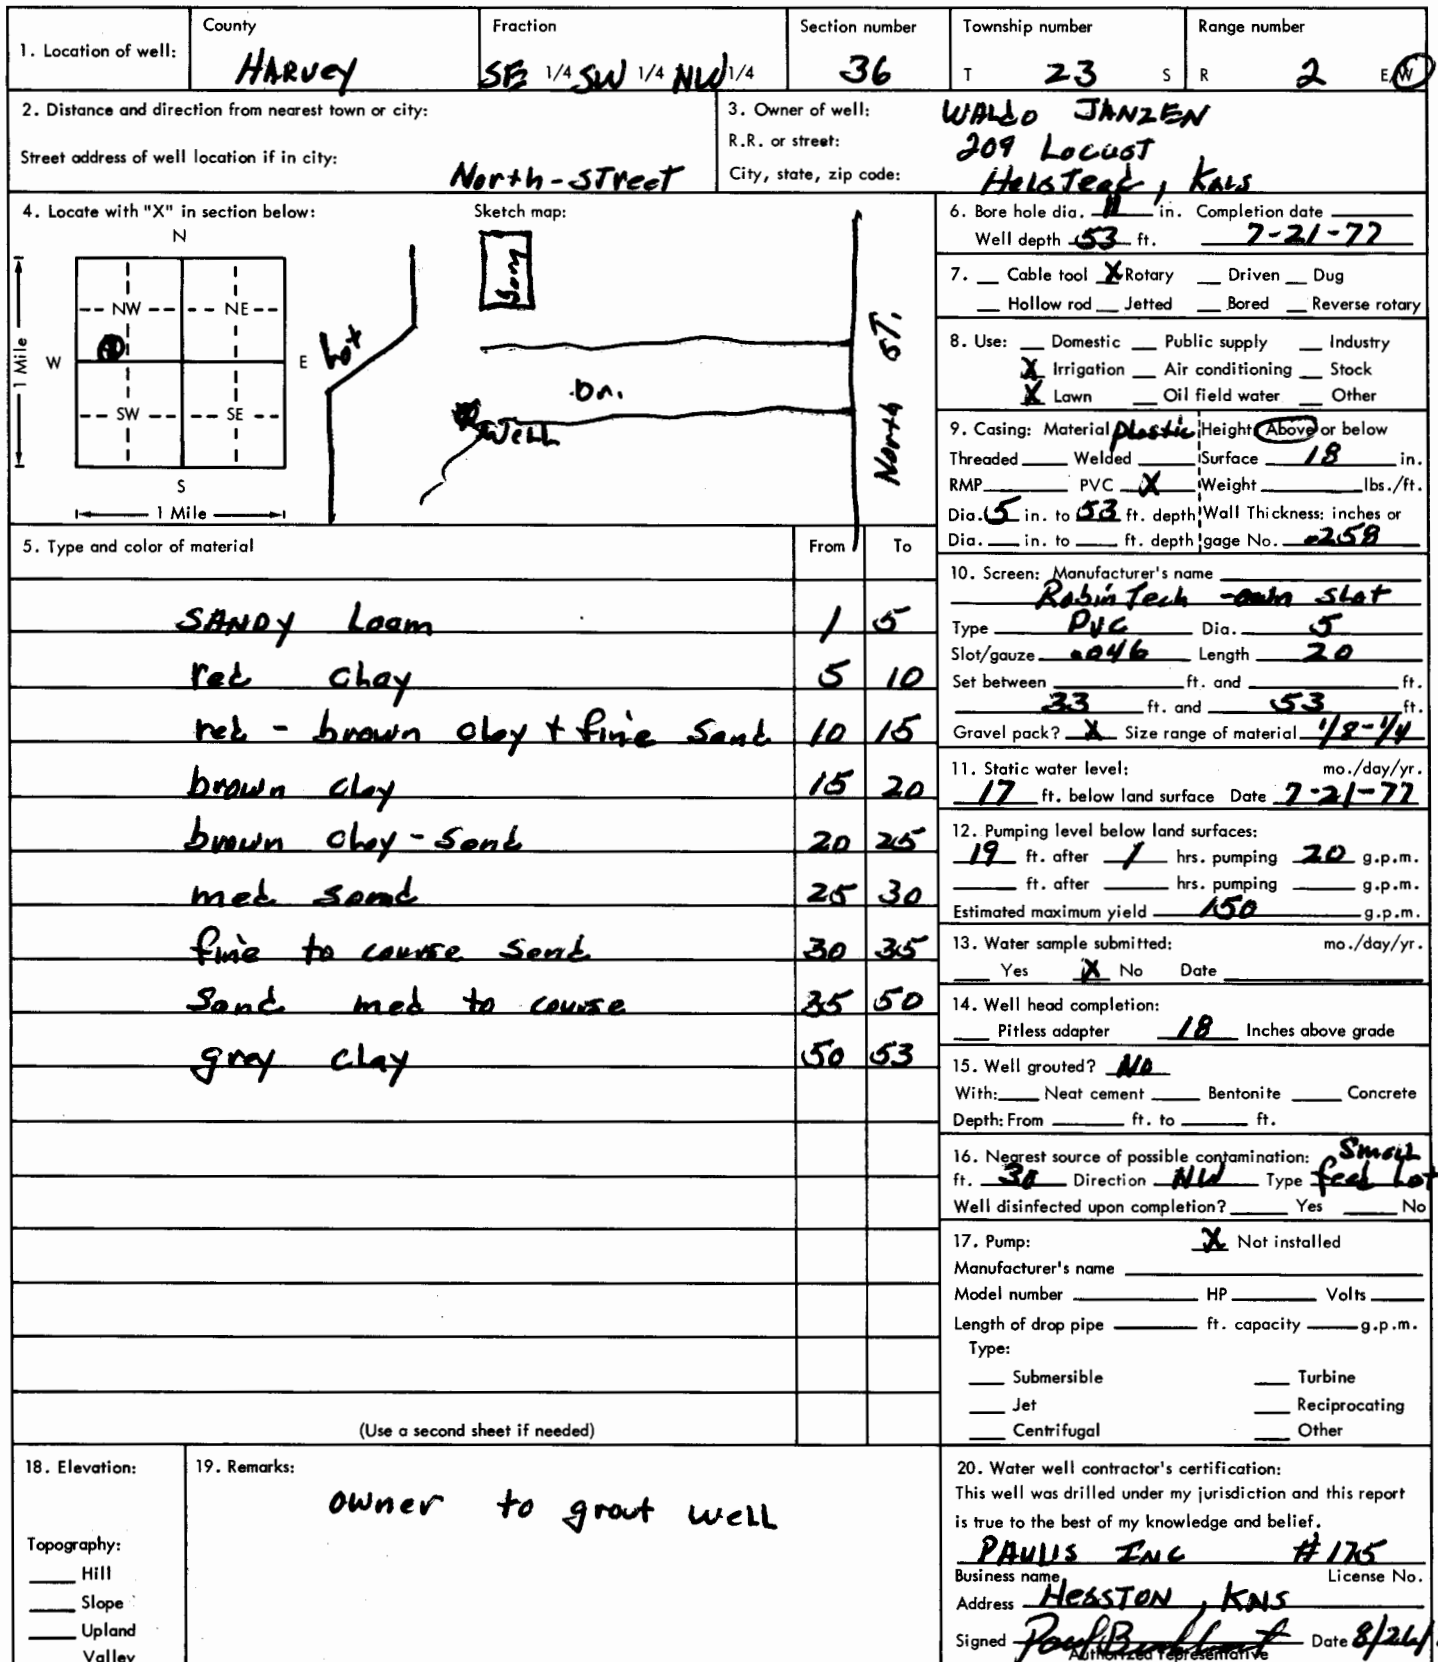 1. Location of well: County HARVEY Fraction SE 1/4 SW 1/4 NW 1/4 Section number 36 Township number T 23 S Range number R 2 E/W
2. Distance and direction from nearest town or city:
Street address of well location if in city: North-STreet
3. Owner of well: WALDO JANZEN
R.R. or street: 209 Locust
City, state, zip code: HalsTead, Kans
4. Locate with "X" in section below:
Sketch map:
N
NW NE
W E
SW SE
S
1 Mile
1 Mile
Lot
Dr.
Well
North ST.
5. Type and color of material From To
SANDY Loam 1 5
red clay 5 10
red - brown clay + fine Sand 10 15
brown clay 15 20
brown clay - Sand 20 25
med sand 25 30
fine to course Sand 30 35
Sand med to course 35 50
grey clay 50 53
(Use a second sheet if needed)
6. Bore hole dia. 11 in. Completion date
Well depth 53 ft. 7-21-77
7. Cable tool X Rotary Driven Dug
Hollow rod Jetted Bored Reverse rotary
8. Use: Domestic Public supply Industry
X Irrigation Air conditioning Stock
X Lawn Oil field water Other
9. Casing: Material plastic Height: Above or below
Threaded Welded Surface 18 in.
RMP PVC X Weight lbs./ft.
Dia. 5 in. to 53 ft. depth Wall Thickness: inches or
Dia. in. to ft. depth gage No. .258
10. Screen: Manufacturer's name
RobinTech slot
Type PVC Dia. 5
Slot/gauze .046 Length 20
Set between ft. and ft.
33 ft. and 53 ft.
Gravel pack? X Size range of material 1/8-1/4
11. Static water level: mo./day/yr.
17 ft. below land surface Date 7-21-77
12. Pumping level below land surfaces:
19 ft. after 1 hrs. pumping 20 g.p.m.
ft. after hrs. pumping g.p.m.
Estimated maximum yield 150 g.p.m.
13. Water sample submitted: mo./day/yr.
Yes X No Date
14. Well head completion:
Pitless adapter 18 Inches above grade
15. Well grouted? No
With: Neat cement Bentonite Concrete
Depth: From ft. to ft.
16. Nearest source of possible contamination: Small
ft. 30 Direction NW Type feed Lot
Well disinfected upon completion? Yes No
17. Pump: X Not installed
Manufacturer's name
Model number HP Volts
Length of drop pipe ft. capacity g.p.m.
Type:
Submersible Turbine
Jet Reciprocating
Centrifugal Other
18. Elevation:
Topography:
Hill
Slope
Upland
Valley
19. Remarks:
owner to grout well
20. Water well contractor's certification:
This well was drilled under my jurisdiction and this report
is true to the best of my knowledge and belief.
PAULS INC #175
Business name License No.
Address HESSTON, KNS
Signed Date 8/26/
Authorized representative